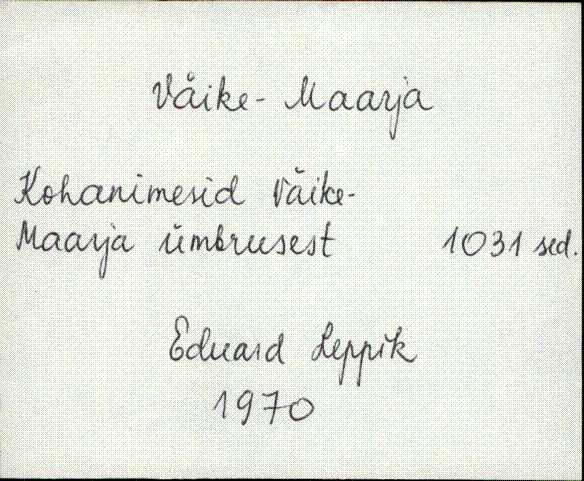 Väike-Maarja
Kohanimesid Väike-
Maarja ümbrusest 1031 sed.
Eduard Leppik
1970